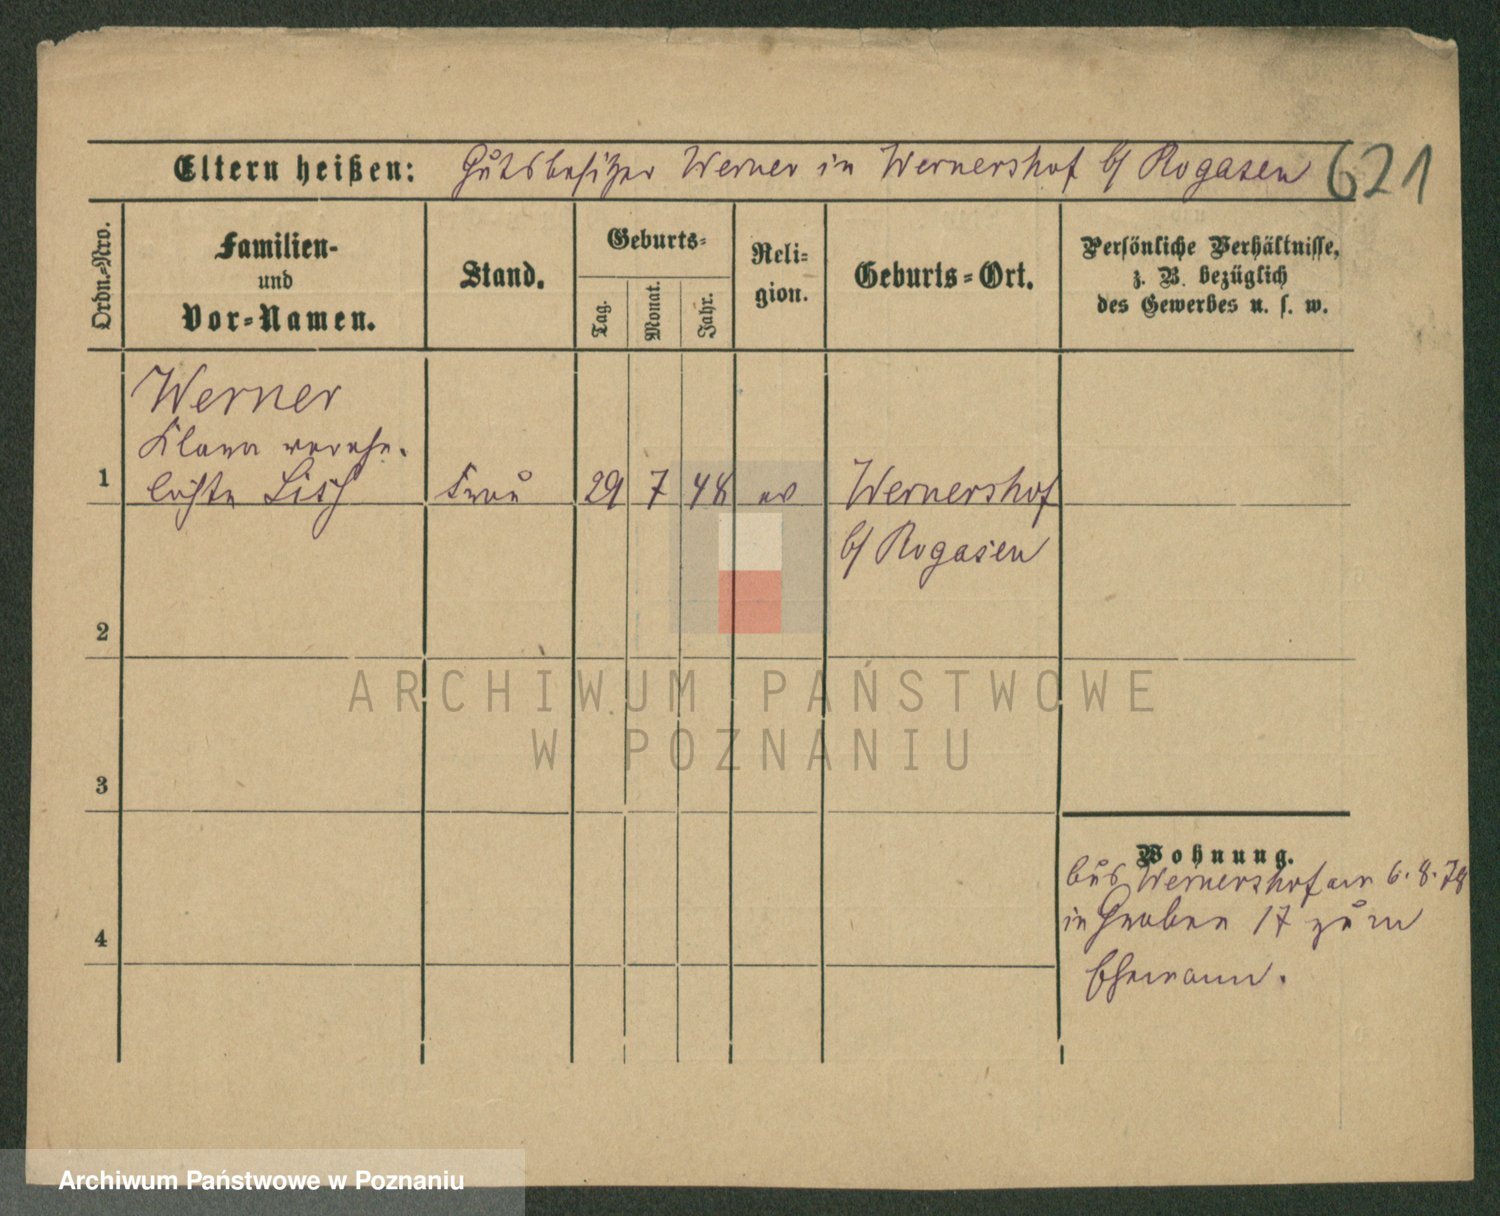 Eltern heißen: Gutsbesitzer Werner in Wernershof b/ Rogasen 621
Ordn.-Nro.
Familien-
und
Vor-Namen.
Stand.
Geburts-
Tag.
Monat.
Jahr.
Reli-
gion.
Geburts-Ort.
Persönliche Verhältnisse,
z. B. bezüglich
des Gewerbes u. s. w.
Werner
Klara vereh-
1 lichte Lisch Frau 29 7 48 ev Wernershof
b/ Rogasen
2
ARCHIWUM PAŃSTWOWE
W POZNANIU
3
Wohnung.
aus Wernershof am 6.8.78
in Graben 17 zum
4
Ehemann.
Archiwum Państwowe w Poznaniu